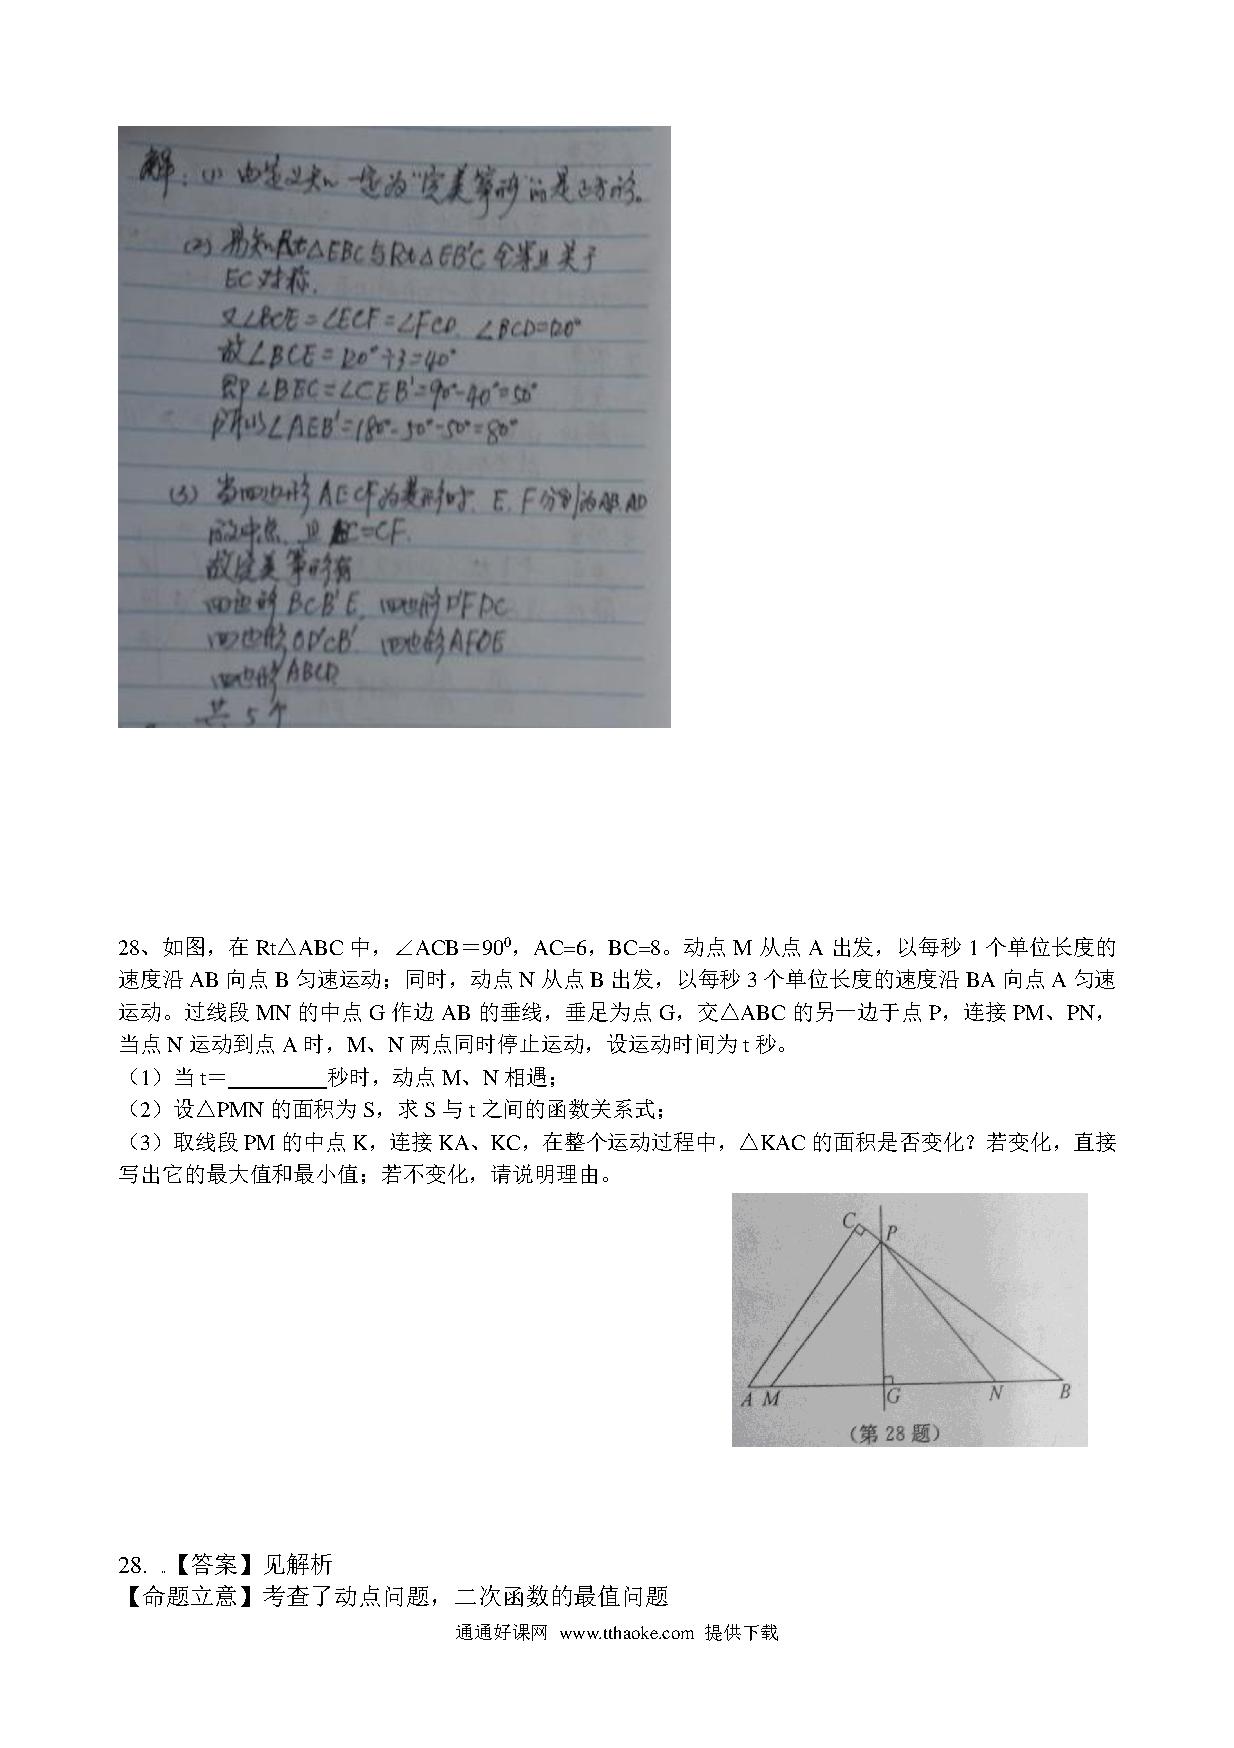 解：(1) 由定义知 一定为"完美筝形"的是正方形。
(2) 易知Rt△EBC与Rt△EB'C 全等且关于
EC对称.
又∠BCE=∠ECF=∠FCD. ∠BCD=120°
故∠BCE=120°÷3=40°
即∠BEC=∠CEB'=90°-40°=50°
所以∠AEB'=180°-50°-50°=80°
(3) 当四边形AECF为菱形时. E、F分别为AB.AD
的中点. 且 EC=CF.
故完美筝形有
四边形BCB'E、四边形D'FDC
四边形OD'CB'、四边形AFOE
四边形ABCD
共5个
28、如图，在 Rt△ABC 中，∠ACB＝90⁰，AC=6，BC=8。动点 M 从点 A 出发，以每秒 1 个单位长度的
速度沿 AB 向点 B 匀速运动；同时，动点 N 从点 B 出发，以每秒 3 个单位长度的速度沿 BA 向点 A 匀速
运动。过线段 MN 的中点 G 作边 AB 的垂线，垂足为点 G，交△ABC 的另一边于点 P，连接 PM、PN，
当点 N 运动到点 A 时，M、N 两点同时停止运动，设运动时间为 t 秒。
（1）当 t＝________秒时，动点 M、N 相遇；
（2）设△PMN 的面积为 S，求 S 与 t 之间的函数关系式；
（3）取线段 PM 的中点 K，连接 KA、KC，在整个运动过程中，△KAC 的面积是否变化？若变化，直接
写出它的最大值和最小值；若不变化，请说明理由。
C P
A M G N B
(第 28 题)
28. 【答案】见解析
【命题立意】考查了动点问题，二次函数的最值问题
通通好课网 www.tthaoke.com 提供下载